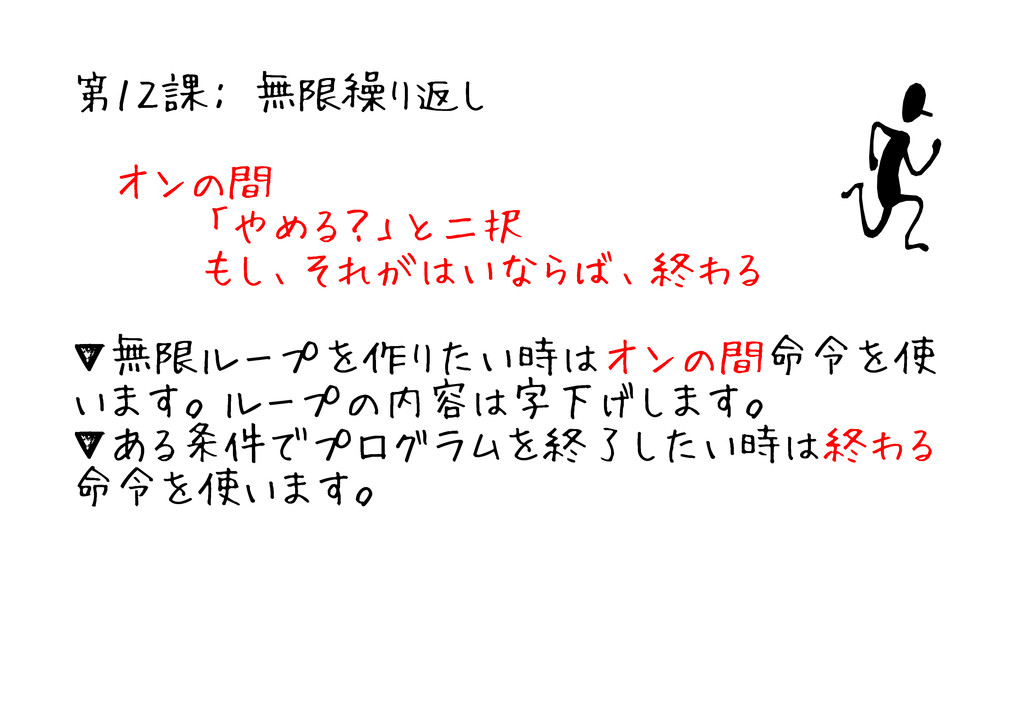 第12課; 無限繰り返し
オンの間
「やめる?」と二択
もし、それがはいならば、終わる
▼無限ループを作りたい時はオンの間命令を使
います。ループの内容は字下げします。
▼ある条件でプログラムを終了したい時は終わる
命令を使います。